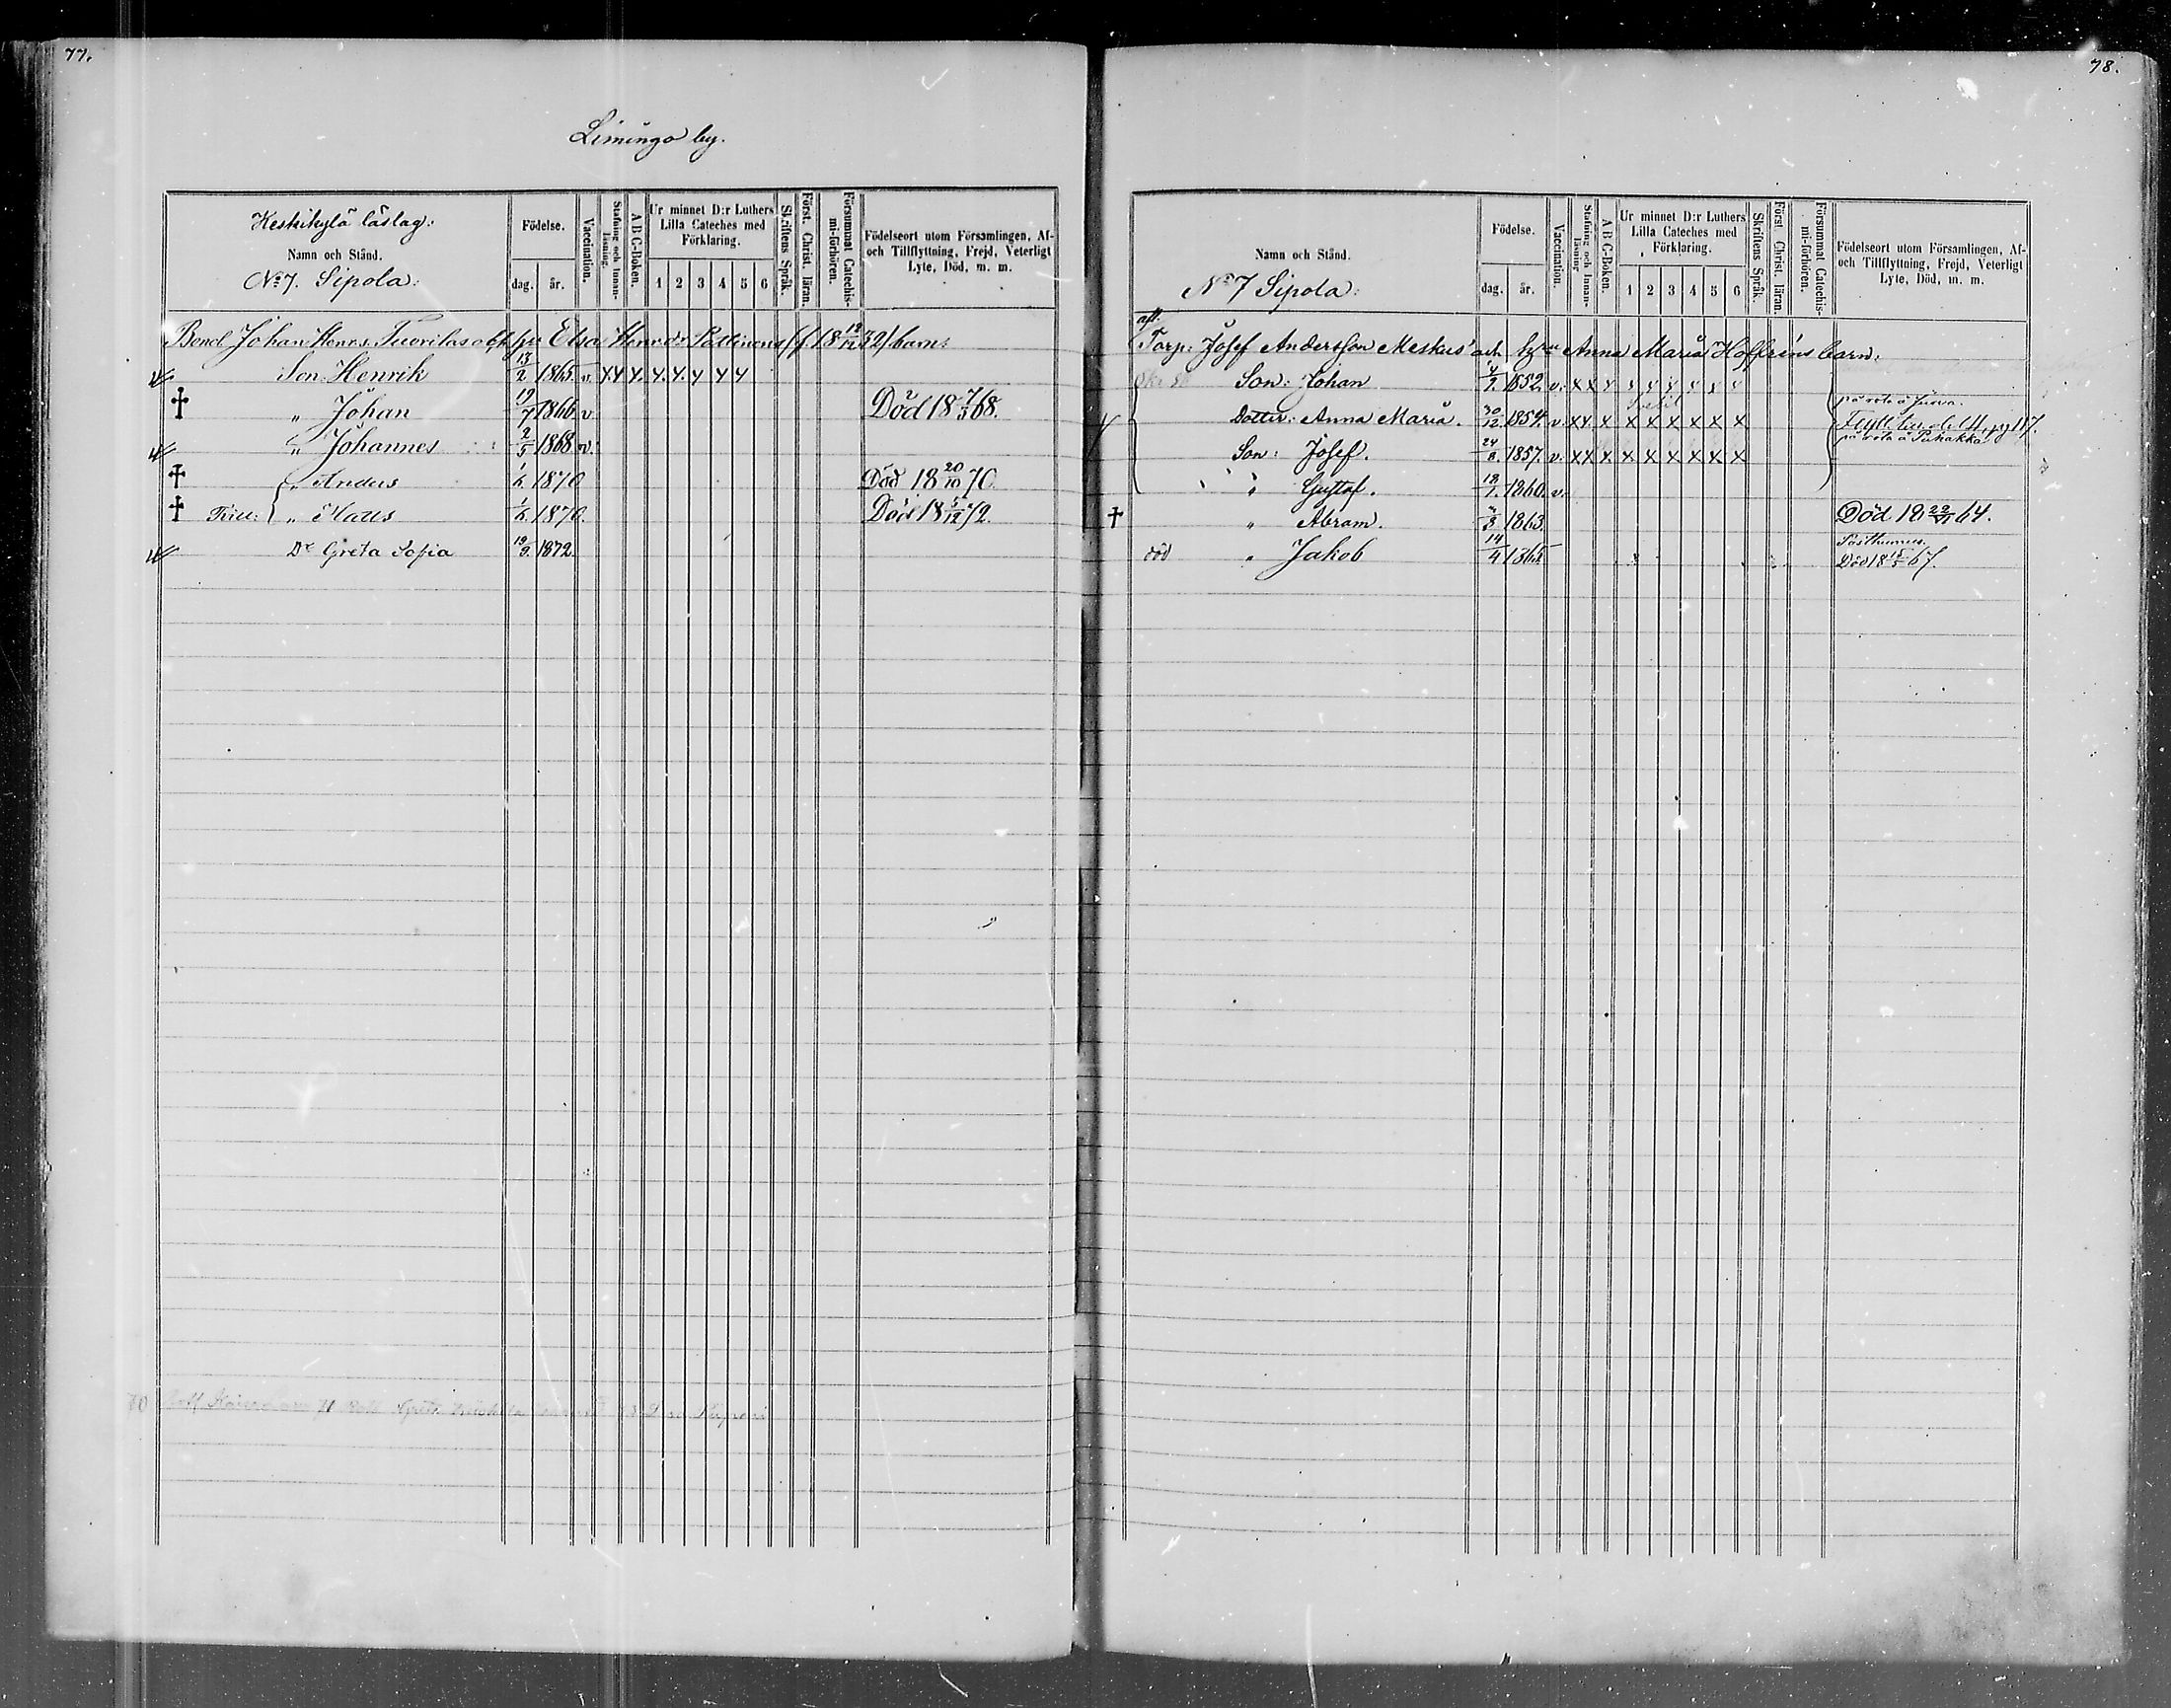 77.
Limingo by.
Keskikylä läslag:
Namn och Stånd.
No 7. Sipola:
Födelse.
dag. år.
Vaccination.
Stafning och Innan-läsning.
A B C-Boken.
Ur minnet D:r Luthers Lilla Cateches med Förklaring.
1 2 3 4 5 6
Skriftens Språk.
Först. Christ. läran.
Försummat Catechis-mi-förhören.
Födelseort utom Församlingen, Af- och Tillflyttning, Frejd, Veterligt Lyte, Död, m. m.
Bond. Johan Henrs. Tuorilas o. hu Elsa Henrdr 18 32/barn:
Son: Henrik 13/2 1865. v. x x x. x. x. x x x
† " Johan 19/7 1866. v Död 18 7/5 68.
" Johannes 2/5 1868 v.
† " Anders 1/6. 1870 Död 18 20/10 70.
† Trill: " Matts 1/6. 1870. Död 18 5/12 72.
Dr Greta Sofia 19/9. 1872.
78.
Namn och Stånd.
No 7 Sipola:
Födelse.
dag. år.
Vaccination.
Stafning och Innan-läsning
A B C-Boken.
Ur minnet D:r Luthers Lilla Cateches med Förklaring.
1 2 3 4 5 6
Skriftens Språk.
Först. Christ. läran.
Försummat Catechis-mi-förhören.
Födelseort utom Församlingen, Af- och Tillflyttning, Frejd, Veterligt Lyte, Död, m. m.
afl.
Torp: Josef Andersson Meskus' och h:u Anna Maria Hoffréns barn:
Son: Johan 4/7. 1852. v. x x x x x x x x x
Dotter: Anna Maria. 30/12. 1854. v x x x x x x x x x Flytt. till pag 117.
Son: Josef. 24/8. 1857. v. x x x x x x x x x
" Gustaf. 18/7. 1860. v.
† " Abram. 1863. Död 18 64.
död " Jakob 14/4 1865 Posthumus.
Död 18 15/5 67.